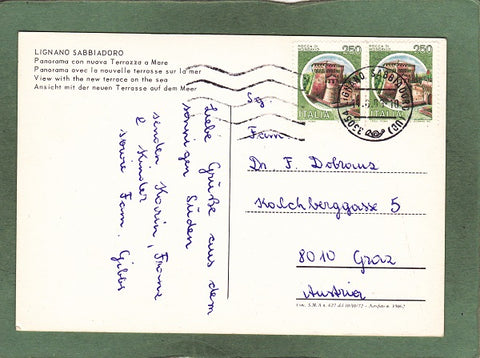 LIGNANO SABBIADORO
Panorama con nuova Terrazza a Mare
Panorama avec la nouvelle terrasse sur la mer
View with the new terrace on the sea
Ansicht mit der neuen Terrasse auf dem Meer
250 250
ITALIA ITALIA
LIGNANO SABBIADORO (UD)
33054
Sg.
Fam.
Dr. F. Dobrans
Kalchberggasse 5
8010 Graz
Austria
Liebe Grüße aus dem
sonnigen Süden
senden Karin, Franz
& Kinder
sowie Fam. Gibbs